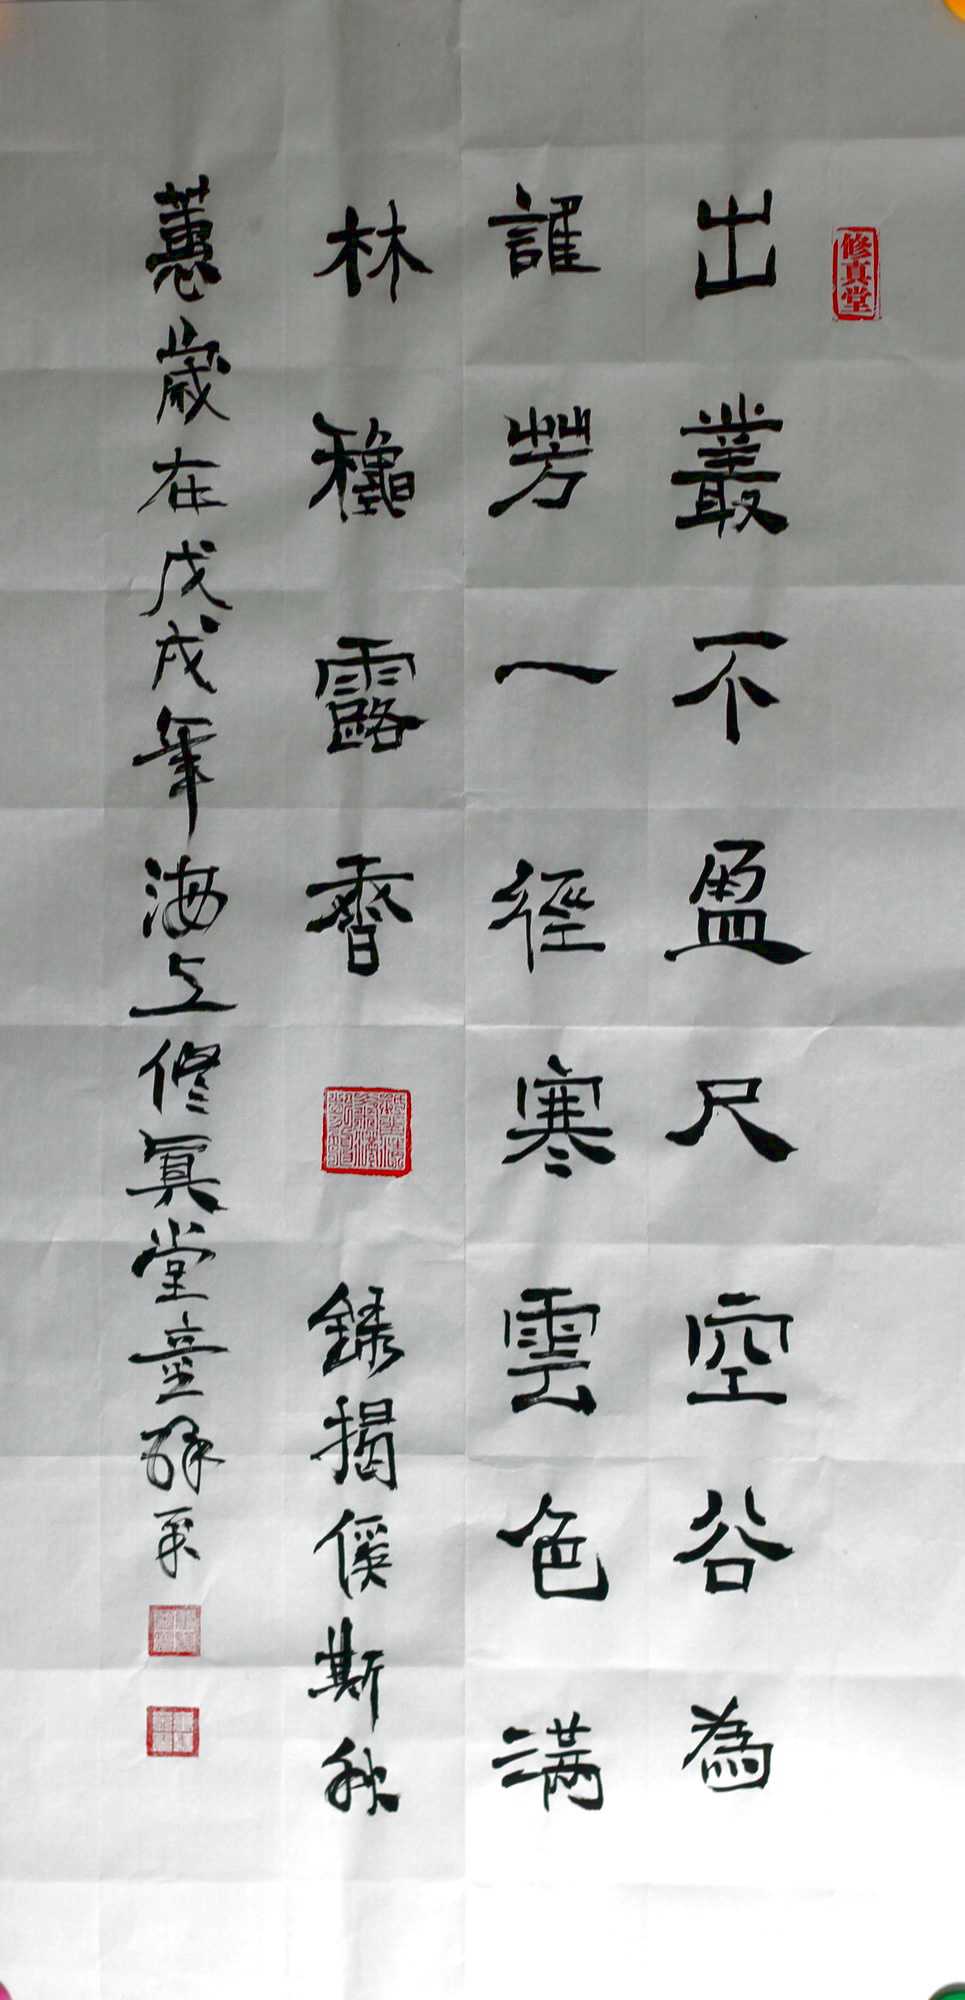 修真堂
出叢不盈尺空谷為
誰芳一徑寒雲色滿
林穐露香
錄揭傒斯秋
蕙歲在戊戌年海上修真堂童